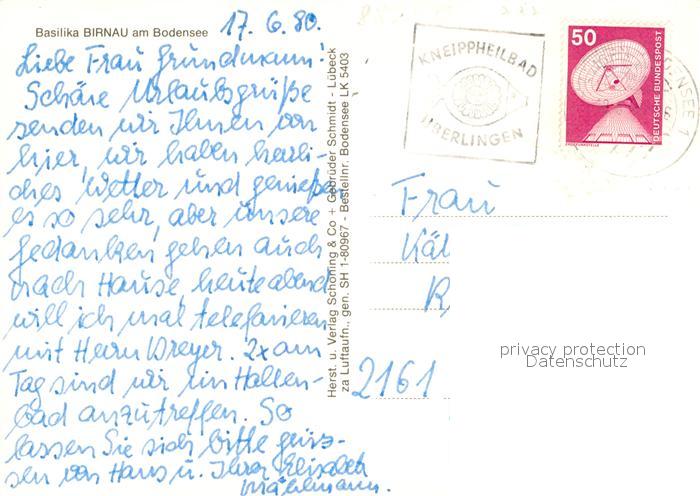 Basilika BIRNAU am Bodensee
17. 6. 80.
Liebe Frau Grundmann!
Schöne Urlaubsgrüße
senden wir Ihnen von
hier, wir haben herrli-
ches Wetter und genießen
es so sehr, aber unsere
Gedanken gehen auch
nach Hause, heute abend
will ich mal telefonieren
mit Herrn Dreyer. 2x am
Tag sind wir im Hallen-
bad anzutreffen. So
lassen Sie sich bitte grüs-
sen von Hans u. Ihrer Elisabeth
Herst. u. Verlag Schöning & Co + Gebrüder Schmidt - Lübeck
za Luftaufn., gen. SH 1-80967 - Bestellnr. Bodensee LK 5403
KNEIPPHEILBAD
ÜBERLINGEN
50
DEUTSCHE BUNDESPOST
Frau
Kät
R
2161
privacy protection
Datenschutz